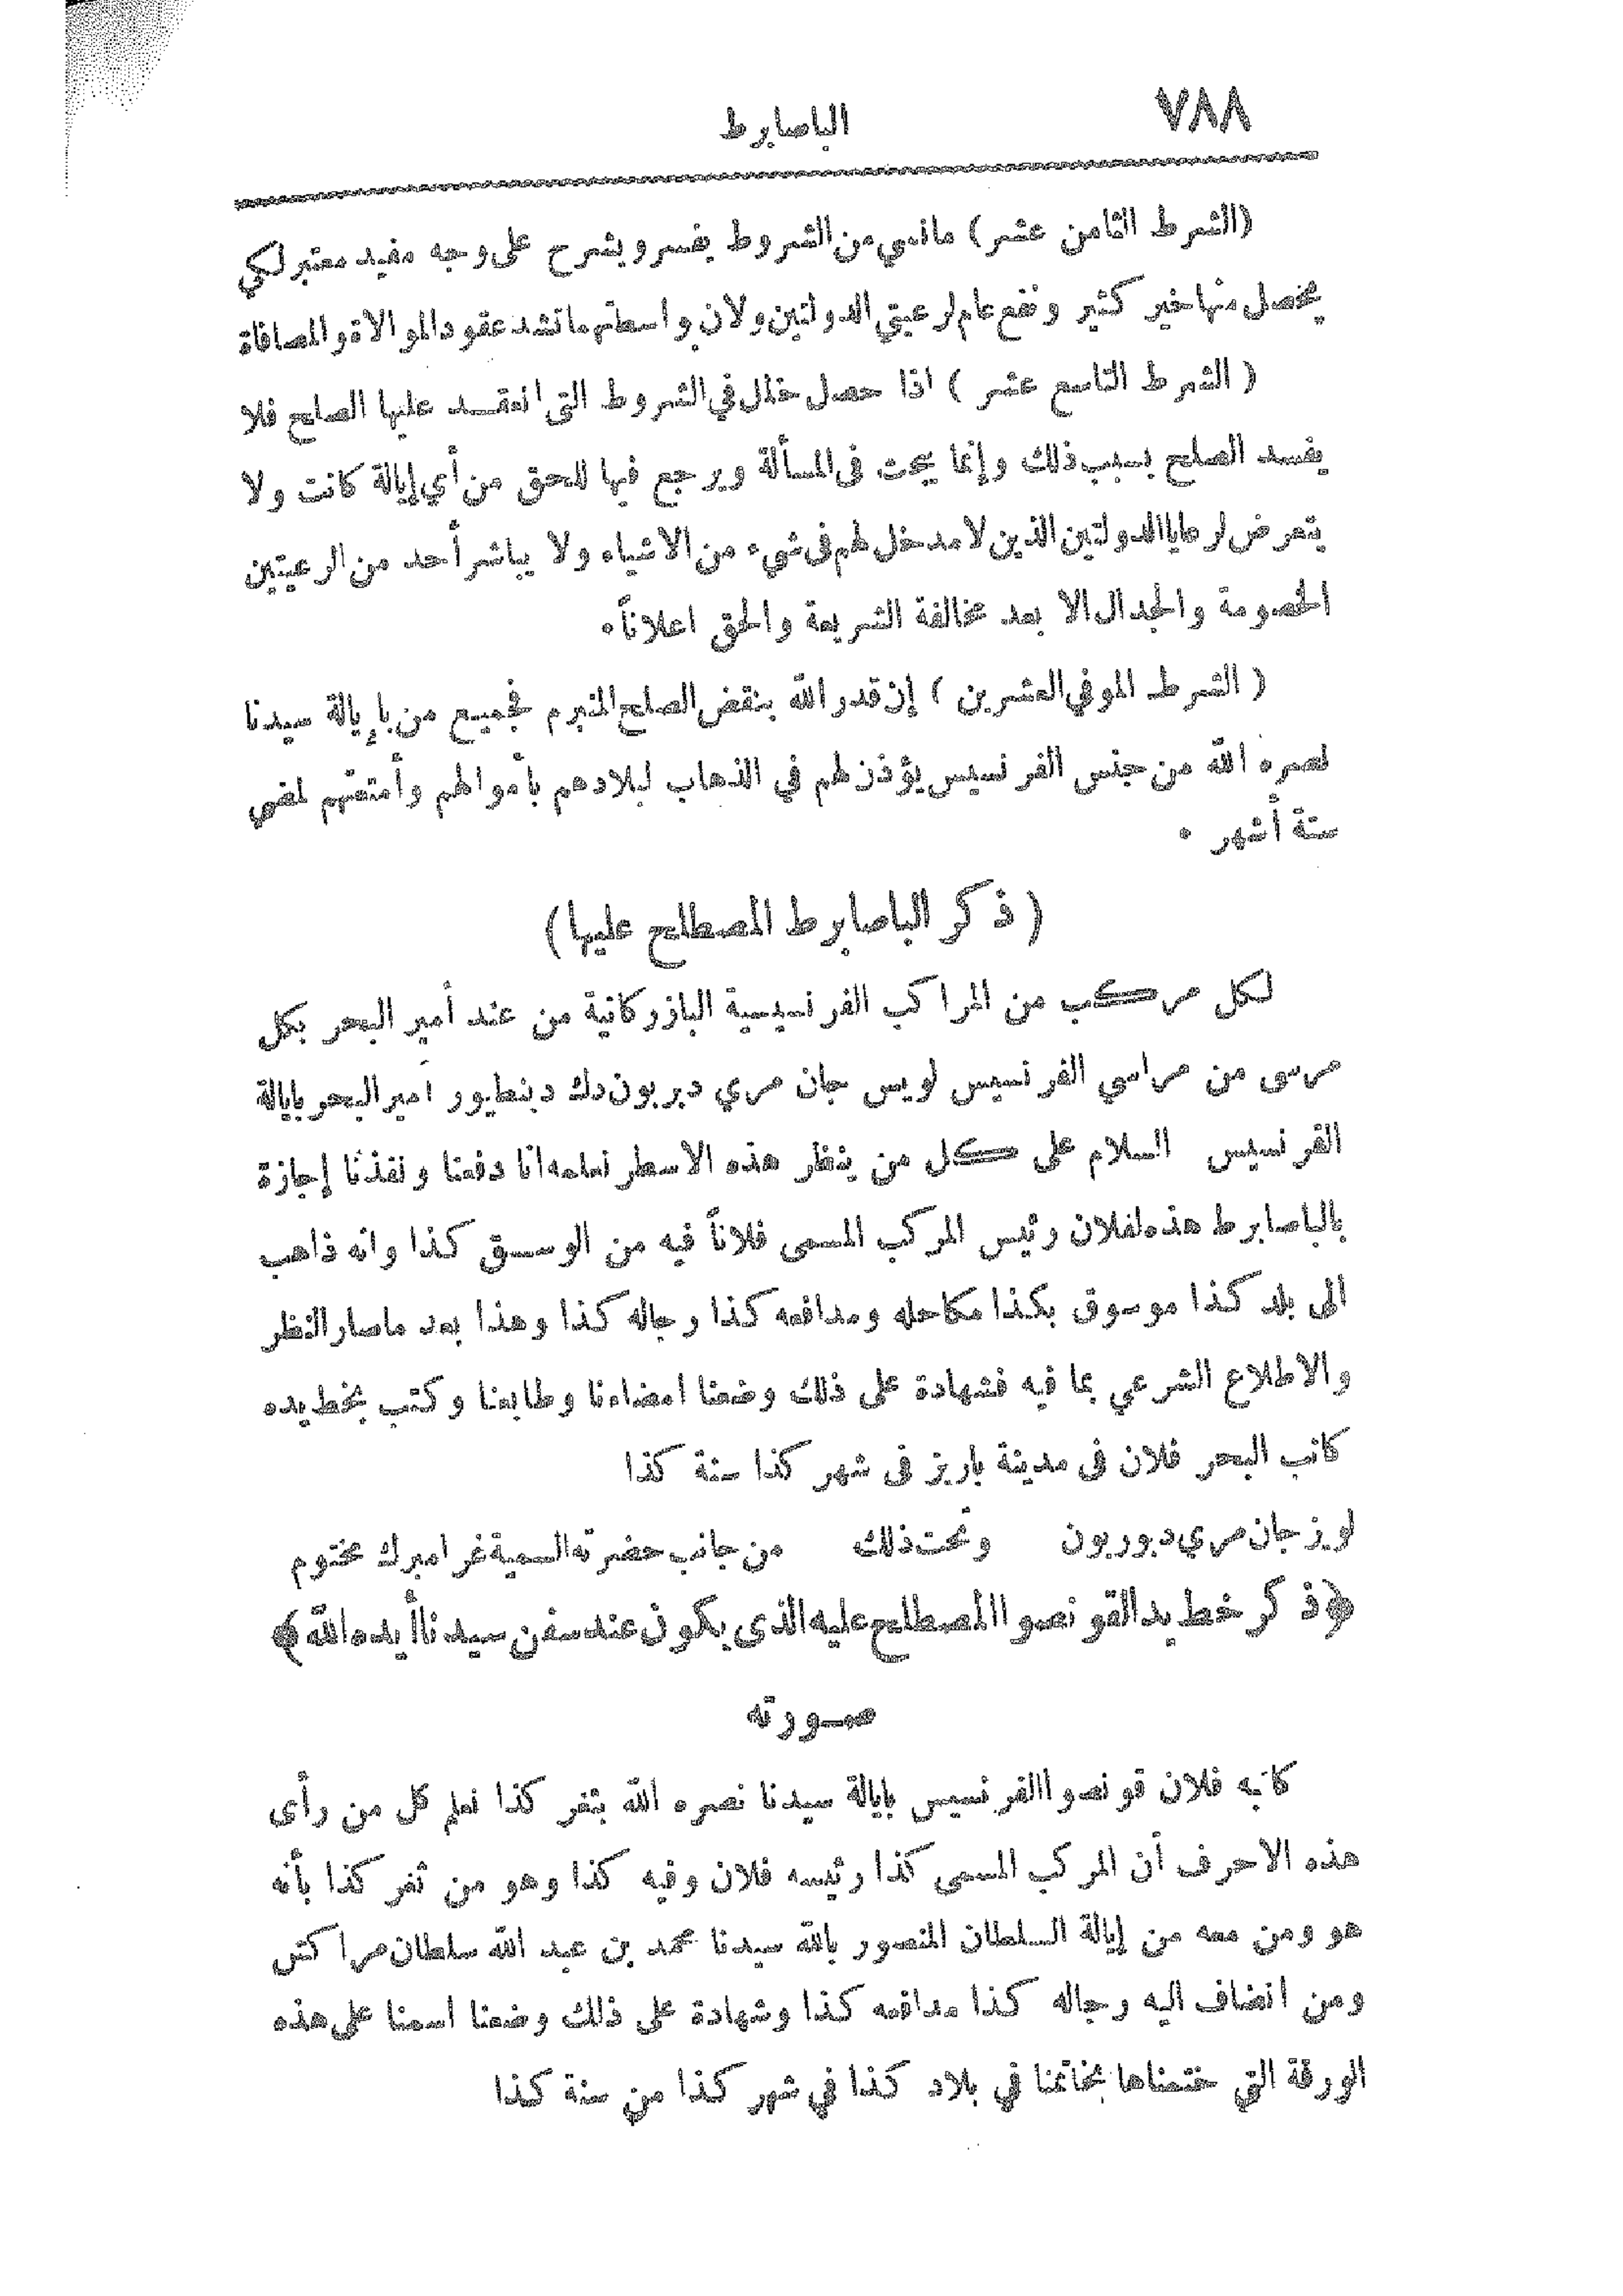 ٧٨٨
الباصابرط
(الشرط الثامن عشر) ما نسي من الشروط يفسر ويشرح على وجه مفيد معتبر لكي
يحصل منها خير كثير ونفع عام لرعيتي الدولتين ولان بواسطتهما تشد عقود الموالاة والمصافاة
( الشرط التاسع عشر ) اذا حصل خلل في الشروط التى انعقد عليها الصلح فلا
يفسد الصلح بسبب ذلك وإنما يبحث فى المسألة ويرجع فيها للحق من أي إيالة كانت ولا
يتعرض لرعايا الدولتين الذين لا مدخل لهم فى شيء من الاشياء ولا يباشر أحد من الرعيتين
الخصومة والجدال الا بعد مخالفة الشريعة والحق اعلاناً .
( الشرط الموفي العشرين ) إن قدر الله بنقض الصلح المنبرم فجميع من بإيالة سيدنا
نصره الله من جنس الفرنسيس يؤذن لهم في الذهاب لبلادهم بأموالهم وأمتعتهم لمضي
ستة أشهر .
( ذكر الباصابرط المصطلح عليها )
لكل مركب من المراكب الفرنسيسية البازركانية من عند أمير البحر بكل
مرسى من مراسي الفرنسيس لويس جان مري دبربون دك دبنطيور أمير البحر بايالة
الفرنسيس السلام على كل من ينظر هذه الاسطر نعلمه انا دفعنا ونفذنا إجازة
بالباصابرط هذه لفلان رئيس المركب المسمى فلاناً فيه من الوسق كذا وانه ذاهب
الى بلد كذا موسوق بكذا مكاحله ومدافعه كذا رجاله كذا وهذا بعد ما صار النظر
والاطلاع الشرعي بما فيه فشهادة على ذلك وضعنا امضاءنا وطابعنا وكتب بخط يده
كاتب البحر فلان فى مدينة باريز فى شهر كذا سنة كذا
لويز جان مري دبوربون وتحت ذلك من جانب حضرته السمية غرامبرك مختوم
﴿ ذكر خط يد القونصوا المصطلح عليه الذى يكون عند سفن سيدنا أيده الله ﴾
صورته
كاتبه فلان قونصوا الفرنسيس بايالة سيدنا نصره الله بثغر كذا نعلم كل من رأى
هذه الاحرف أن المركب المسمى كذا رئيسه فلان وفيه كذا وهو من ثغر كذا بأنه
هو ومن معه من إيالة السلطان المنصور بالله سيدنا محمد بن عبد الله سلطان مراكش
ومن انضاف اليه رجاله كذا مدافعه كذا وشهادة على ذلك وضعنا اسمنا على هذه
الورقة التي ختمناها بخاتمنا في بلاد كذا في شهر كذا من سنة كذا